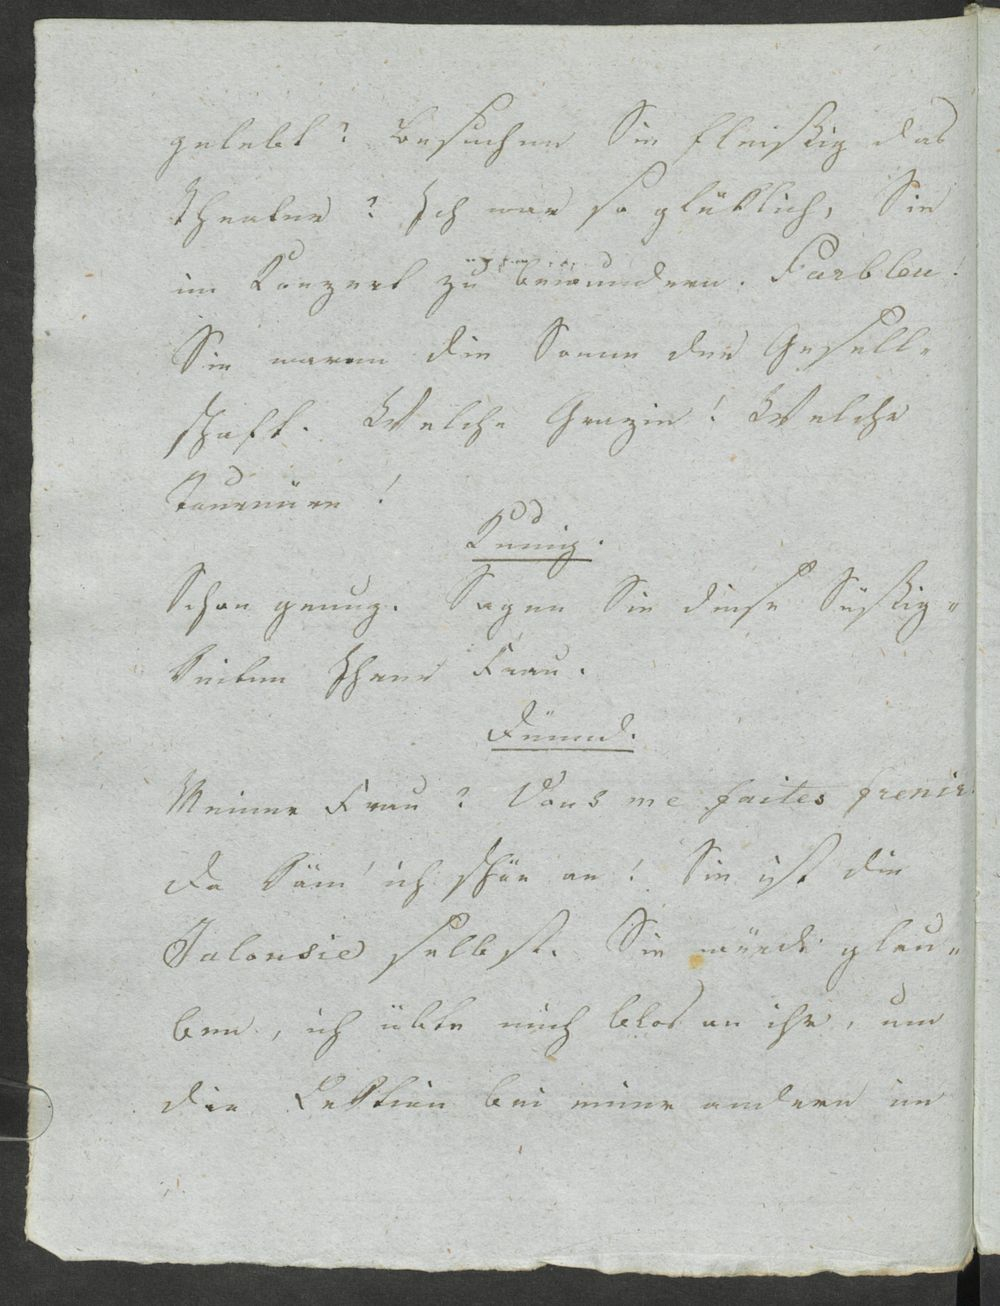 gelebt? Besuchen Sie fleißig das
Theater? Ich war so glüklich, Sie
im Konzert zu bewundern. Parbleu!
Sie waren die Sonne der Gesell-
schaft. Welche Grazie! Welche
Tournüre!
Kunig.
Schon genug. Sagen Sie diese Süßig-
keiten Ihrer Frau.
Dümmd.
Meiner Frau? Vous me faites fremir.
Da käm' ich schön an! Sie ist die
Jalousie selbst. Sie würde glau-
ben, ich übte mich blos an ihr, um
die Lektion bei einer andern im